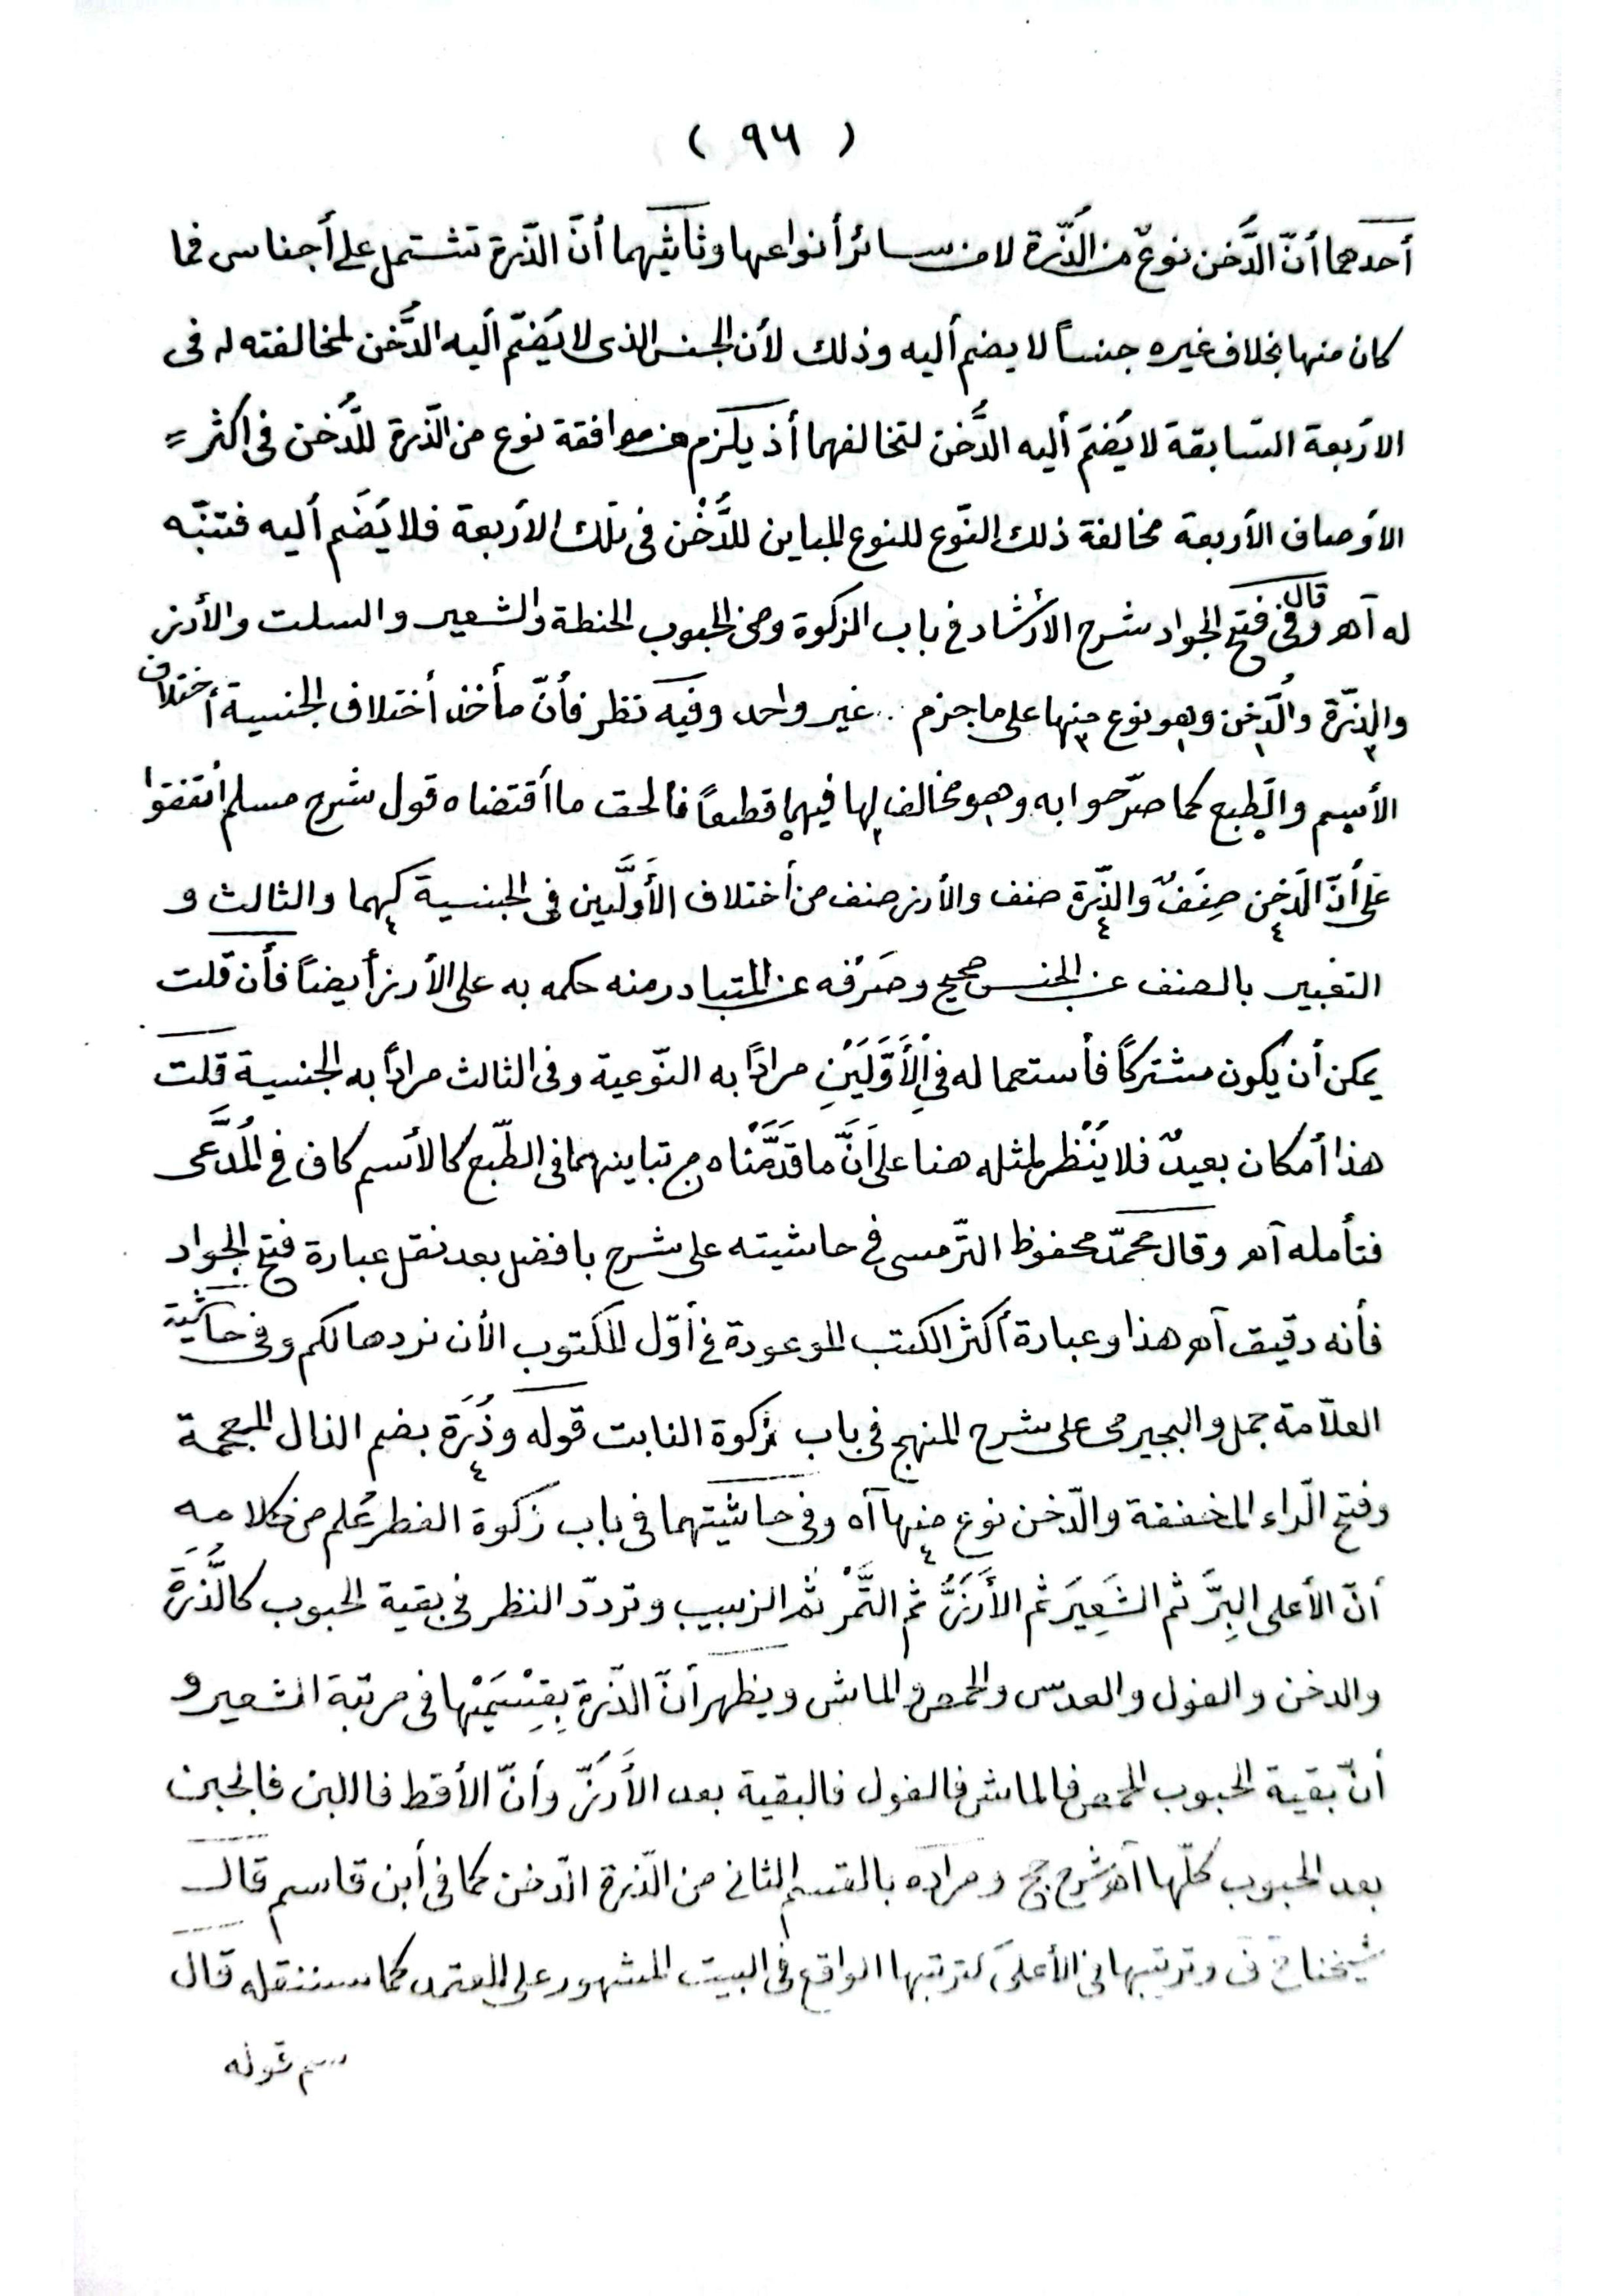 ( ٩٦ )
أحدهما أنّ الدُّخن نوعٌ من الذُّرة لا من سائر أنواعها وثانيهما أنّ الذّرة تشتمل على أجناس فما
كان منها بخلاف غيره جنساً لا يضم أليه وذلك لأن الجنس الذى لا يُضمّ أليه الدُّخن لمخالفته له فى
الاربعة السّابقة لا يُضمّ أليه الدُّخن لتخالفهما أذ يلزم من موافقة نوع من الذّرة للدُّخن فى اكثر =
الأوصاف الأربعة مخالفة ذلك النّوع للنوع المباين للدُّخْن فى تلك الأربعة فلا يُضَم أليه فتنبّه
له آهـ وقال فى فتح الجواد شرح الأرشاد فى باب الزكوة ومن الحبوب الحنطة والشعير والسلت والأرز
والذّرة والدُّخن وهو نوع منها على ما جزم به غير واحد وفيه نظر فأنّ مأخذ أختلاف الجنسية أختلاف
الأسم والطبع كما صرّحوا به وهو مخالف لها فيهما قطعاً فالحق ما أقتضاه قول شرح مسلم أتفقوا
على أنّ الدّخن صِنفٌ والذّرة صنف والأرز صنف من أختلاف الأَوَّلَين فى الجنسية كهما والثالث و
التعبير بالصنف عن الجنس صحيح وصَرْفه عن المتبادر منه حكمه به على الأرز أيضاً فأن قلت
يمكن أن يكون مشتركاً فأستعماله فى الأَوَّلَيْنِ مرادًا به النّوعية وفى الثالث مرادًا به الجنسية قلت
هذا أمكان بعيدٌ فلا يُنْظر لمثله هنا على أَنَّ ما قدَّمْنَاه من تباينهما فى الطّبع كالأسم كاف فى المُدَّعَى
فتأمله آهـ وقال محمّد محفوظ التّرمسى فى حاشيته على شرح بافضل بعد نقل عبارة فتح الجواد
فأنه دقيق آهـ هذا وعبارة أكثر الكتب الموعودة فى أوّل المكتوب الأن نردها لكم وفى حاشية
العلاّمة جمل والبجيرمى على شرح المنهج فى باب زكوة النابت قوله وذُرَة بضم الذال المعجمة
وفتح الرّاء المخففة والدّخن نوع منها آه وفى حاشيتهما فى باب زكوة الفطر عُلم من كلامه
أنّ الأعلى البِرَّ ثم الشَعِيَر ثم الأَرُزُّ ثم التَّمْر ثم الزبيب وتردّد النظر فى بقية الحبوب كالذُّرَةَ
والدخن والفول والعدس والحمص والماش ويظهر أنّ الذّرة بِقِسْمَيْها فى مرتبة الشعير و
أنّ بقية الحبوب الحمص فالماش فالفول فالبقية بعد الأَرُزّ وأنّ الأقط فاللبن فالجبن
بعد الحبوب كلّها آهـ شرح حج ومراده بالقسم الثانى من الذّرة الدّخن كما فى أبن قاسم قال
شيخنا ح ف وترتيبها فى الأعلى كترتبها الواقع فى البيت المشهور على المعتمد كما سننقله قال
سم قوله